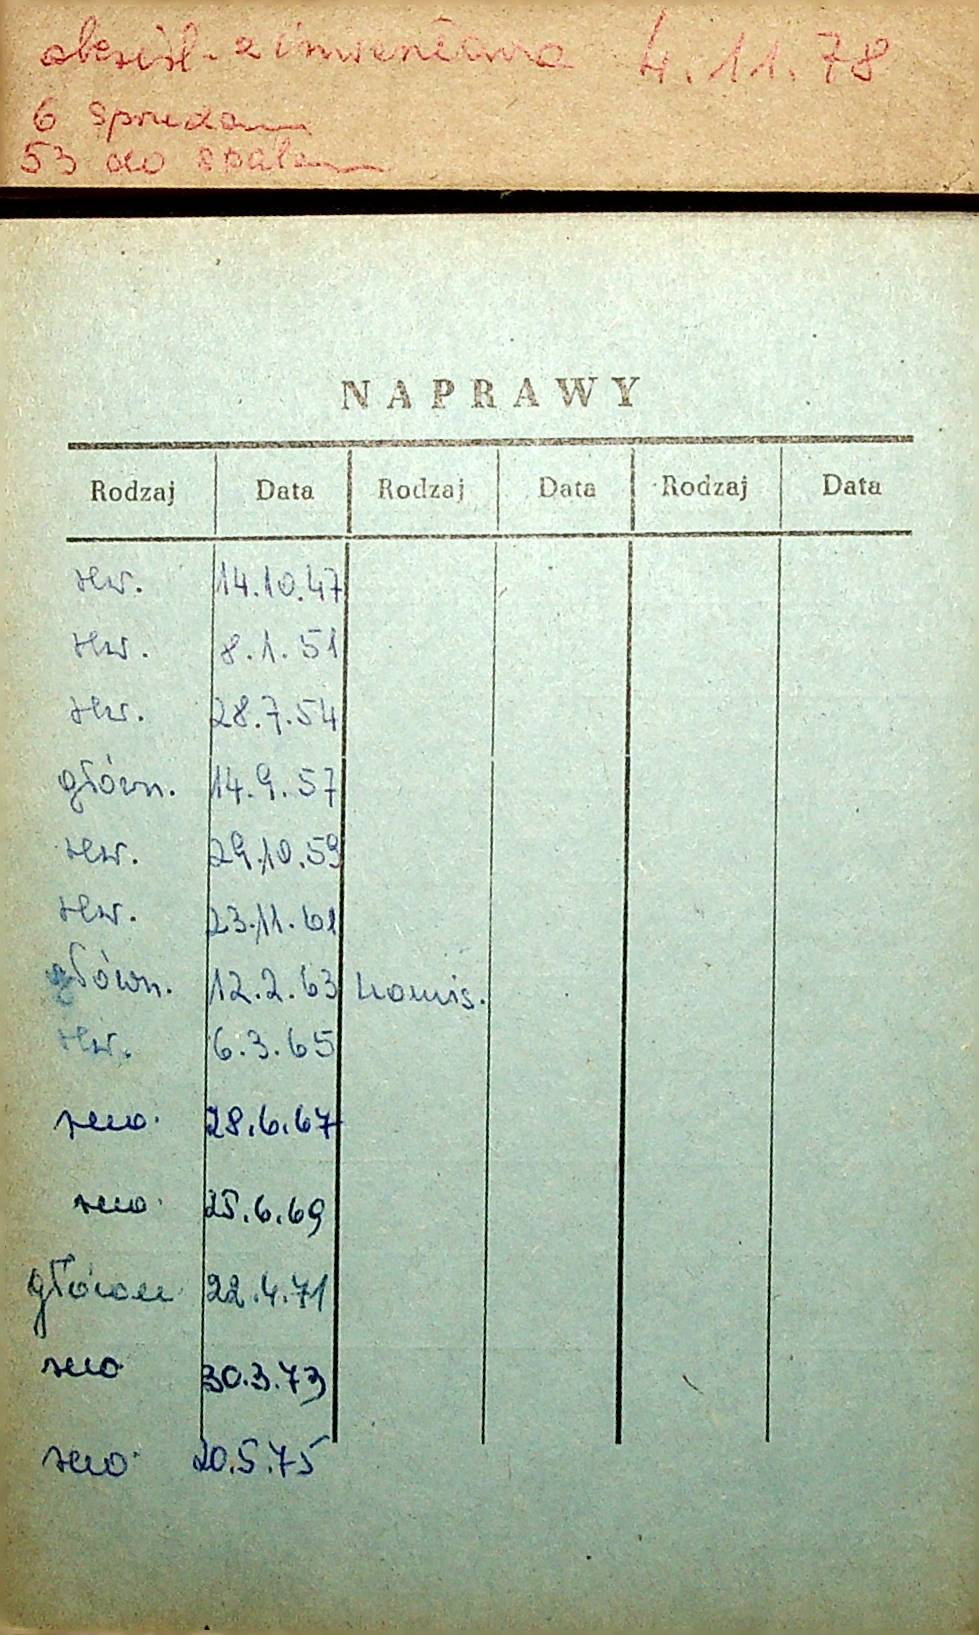 skreśl. z inwentarza 4.11.78
6 sprzedam
53 do spalen
NAPRAWY
Rodzaj Data Rodzaj Data Rodzaj Data
rew. 14.10.47
rew. 8.1.51
rew. 28.7.54
główn. 14.9.57
rew. 29.10.59
rew. 23.11.61
główn. 12.2.63 komis.
rew. 6.3.65
rew. 28.6.67
rew. 25.6.69
główn 22.4.71
rew 30.3.73
rew 20.5.75